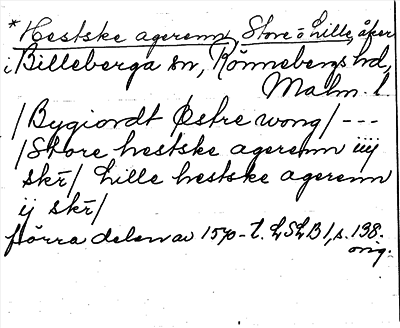 *Hestske agerenn, Store o Lille, åker
i Billeberga sn, Rönnebergs hd,
Malm. l.
/Bygiordt Østre wong/ ---
/Store hestske agerenn iiij
skr̄/ Lille hestske agerenn
ij skr̄/
förra delen av 1570-t. LSLB1, s. 138.
orig.